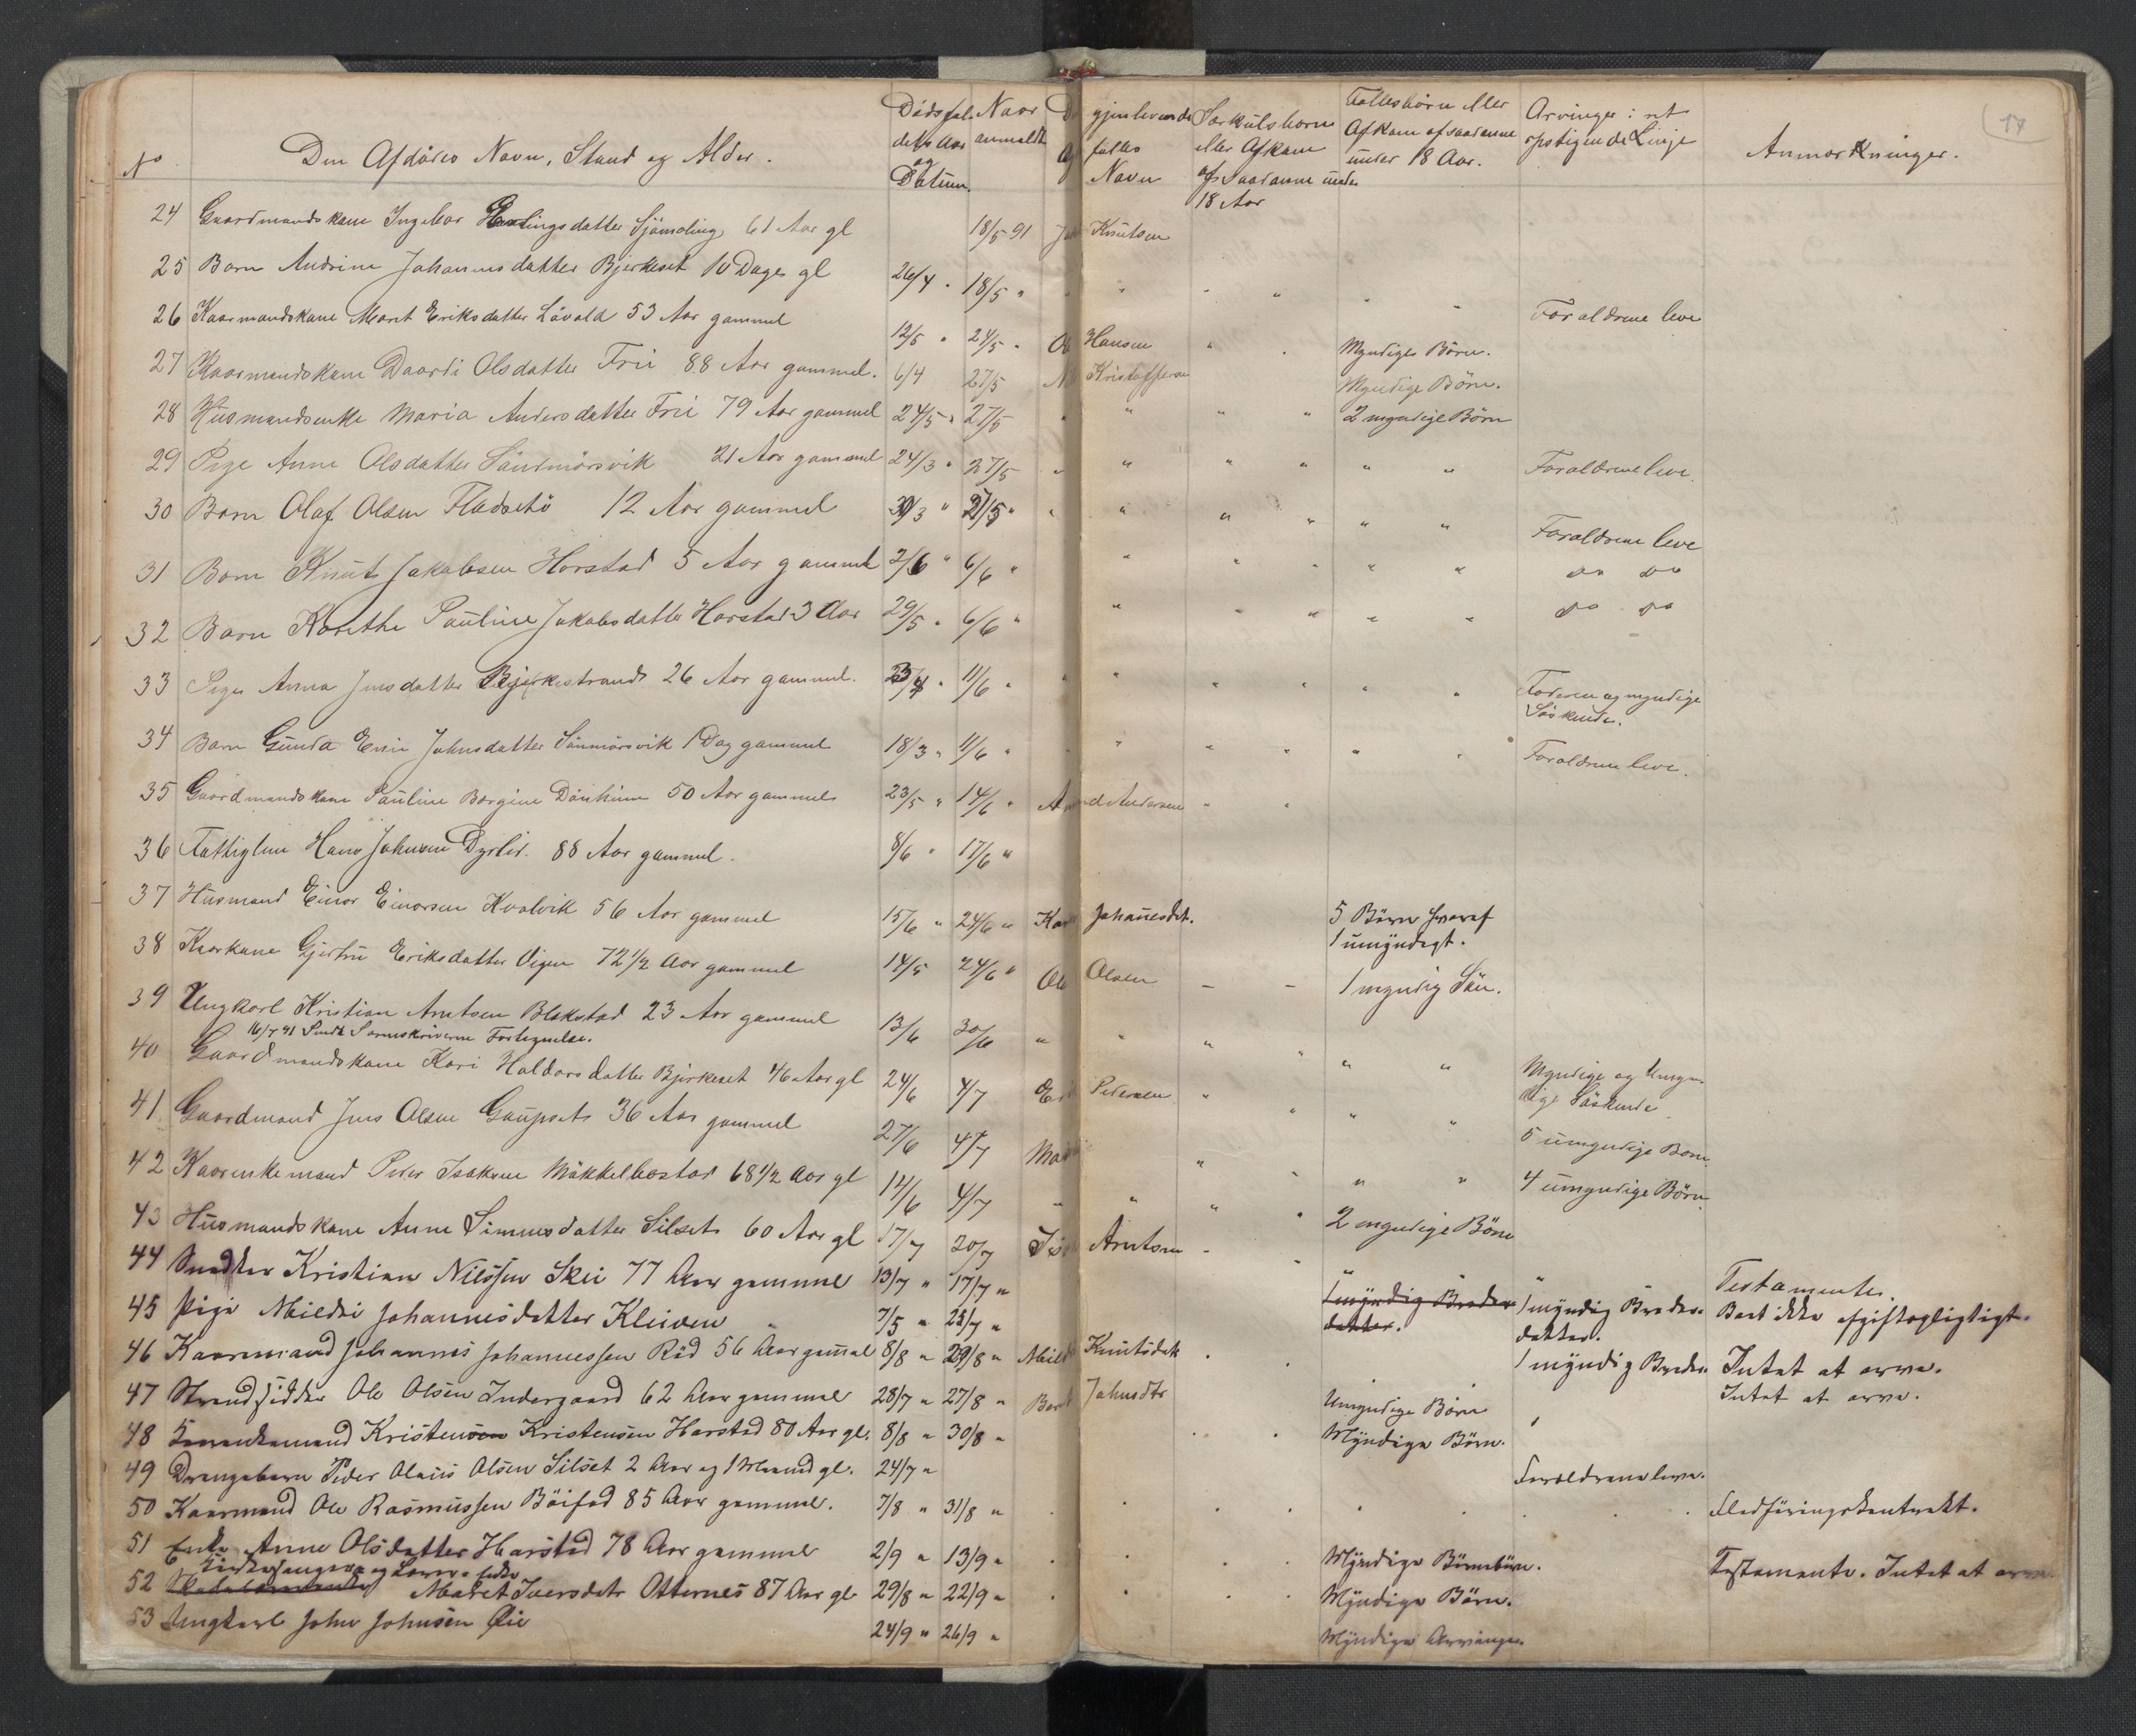 17
No Den Afdödes Navn, Stand og Alder. Dödsfaldets Aar og Datum. Naar anmeldt gjenlevende fælles Navn Særkulsbörn eller Afkom af saadanne under 18 Aar Fællesbörn eller Afkom af saadanne under 18 Aar. Arvinger i ret opstigende Linje Anmærkninger.
24 Gaardmandskone Ingebor Erlingsdatter Sjömæling 61 Aar gl 18/5 91 Knutsen
25 Barn Andrine Johannesdatter Bjerkeset 10 Dage gl 26/4 " 18/5 " Forældrene leve
26 Kaarmandskone Marit Eriksdatter Lövold 53 Aar gammel 12/5 " 24/5 " Ole Hansen Myndige Börn.
27 Kaarmandskone Daardi Olsdatter Frii 88 Aar gammel. 6/4 27/5 Kristoffersen Myndige Börn.
28 Husmandsenke Maria Andersdatter Frii 79 Aar gammel 24/5 " 27/5 " " " 2 myndige Börn
29 Pige Anne Olsdatter Sandmörsvik 21 Aar gammel 24/3 " 27/5 " " " " " " Forældrene leve.
30 Barn Olaf Olsen Fladsetö 12 Aar gammel 30/3 " 27/5 " " " " " " Forældrene leve
31 Barn Knut Jakobsen Horstad 5 Aar gammel 2/6 " 6/6 " " " " " " do do
32 Barn Karethe Pauline Jakobsdatter Harstad 3 Aar 29/5 " 6/6 " " " " " " do do
33 Pige Anna Jensdatter Bjerkestrand 26 Aar gammel. 23/4 " 11/6 " " " " " " Faderen og myndige Söskende.
34 Barn Gunda Enie Johnsdatter Sanmörsvik 1 Dag gammel 18/3 " 11/6 " " " " " " Forældrene leve.
35 Gaardmandskone Pauline Bergine Dönheim 50 Aar gammel 23/5 " 14/6 " Andersen " "
36 Fattiglem Hans Johnsen Dyrlid. 88 Aar gammel. 8/6 " 17/6 "
37 Husmand Einar Einarsen Kvalvik 56 Aar gammel 15/6 " 24/6 " Kari Johanesdt. 5 Börn hvoraf 1 umyndigt.
38 Kaarkone Gjertru Eriksdatter Vigen 72 1/2 Aar gammel 14/5 24/6 " Ole Olsen – – 1 myndig Sön.
39 Ungkarl Kristian Arntsen Blakstad 23 Aar gammel 13/6 30/6 " " " " " " Myndige og Umyndige Söskende
16/7 91 Sendt Sorenskriveren Fortegnelse.
40 Gaardmandskone Kari Haldorsdatter Bjerkeset 46 Aar gl 24/6 4/7 Pedersen " " " " 5 umyndige Börn.
41 Gaardmand Jens Olsen Gaupset 36 Aar gammel 27/6 4/7 " " " " 4 umyndige Börn.
42 Kaarenkemand Peder Isaksen Mökkelbostad 68 1/2 Aar gl 14/6 4/7 " " " " 2 myndige Börn
43 Husmandskone Anne Simensdatter Silset 60 Aar gl 17/7 20/7 Arntsen "
44 Kristian Nielssen Skei 77 Aar gammel 13/7 " 17/7 " " " Testamente.
45 Pige Mildri Johannesdatter Kleiven " 7/5 " 22/7 " 1 myndig Broderdatter. 1 myndig Broderdatter. Boet ikke afgiftspligtigt.
46 Kaarmand Johannes Johannessen Röd 56 Aar gammel 8/8 " 29/8 " Mildri Knutsdatr . . 1 myndig Broder Intet at arve.
47 Strandsidder Ole Olsen Indergaard 62 Aar gammel 28/7 " 27/8 " Berit Johnsdtr Umyndige Börn Intet at arve.
48 Kaarenkemand Kristensen Kristensen Harstad 80 Aar gl. 8/8 " 30/8 " . . Myndige Börn. "
49 Drengebarn Peder Olaüs Olsen Silset 2 Aar og 1 Maaned gl. 24/7 " Forældrene leve.
50 Kaarmand Ole Rasmussen Böifod 85 Aar gammel. 7/8 " 31/8 " Fledföringskontrakt.
51 Enke Anne Olsdatter Harstad 78 Aar gammel 2/9 " 13/9 " Myndige Börnebörn. Testamente. Intet at arve.
Kirkesanger og Lærer Enke
52 Maret Iversdatr Otternes 87 Aar gl 29/8 " 22/9 " Myndige Börn.
53 Ungkarl John Johnsen Öie 24/9 " 26/9 " Myndige Arvinger.